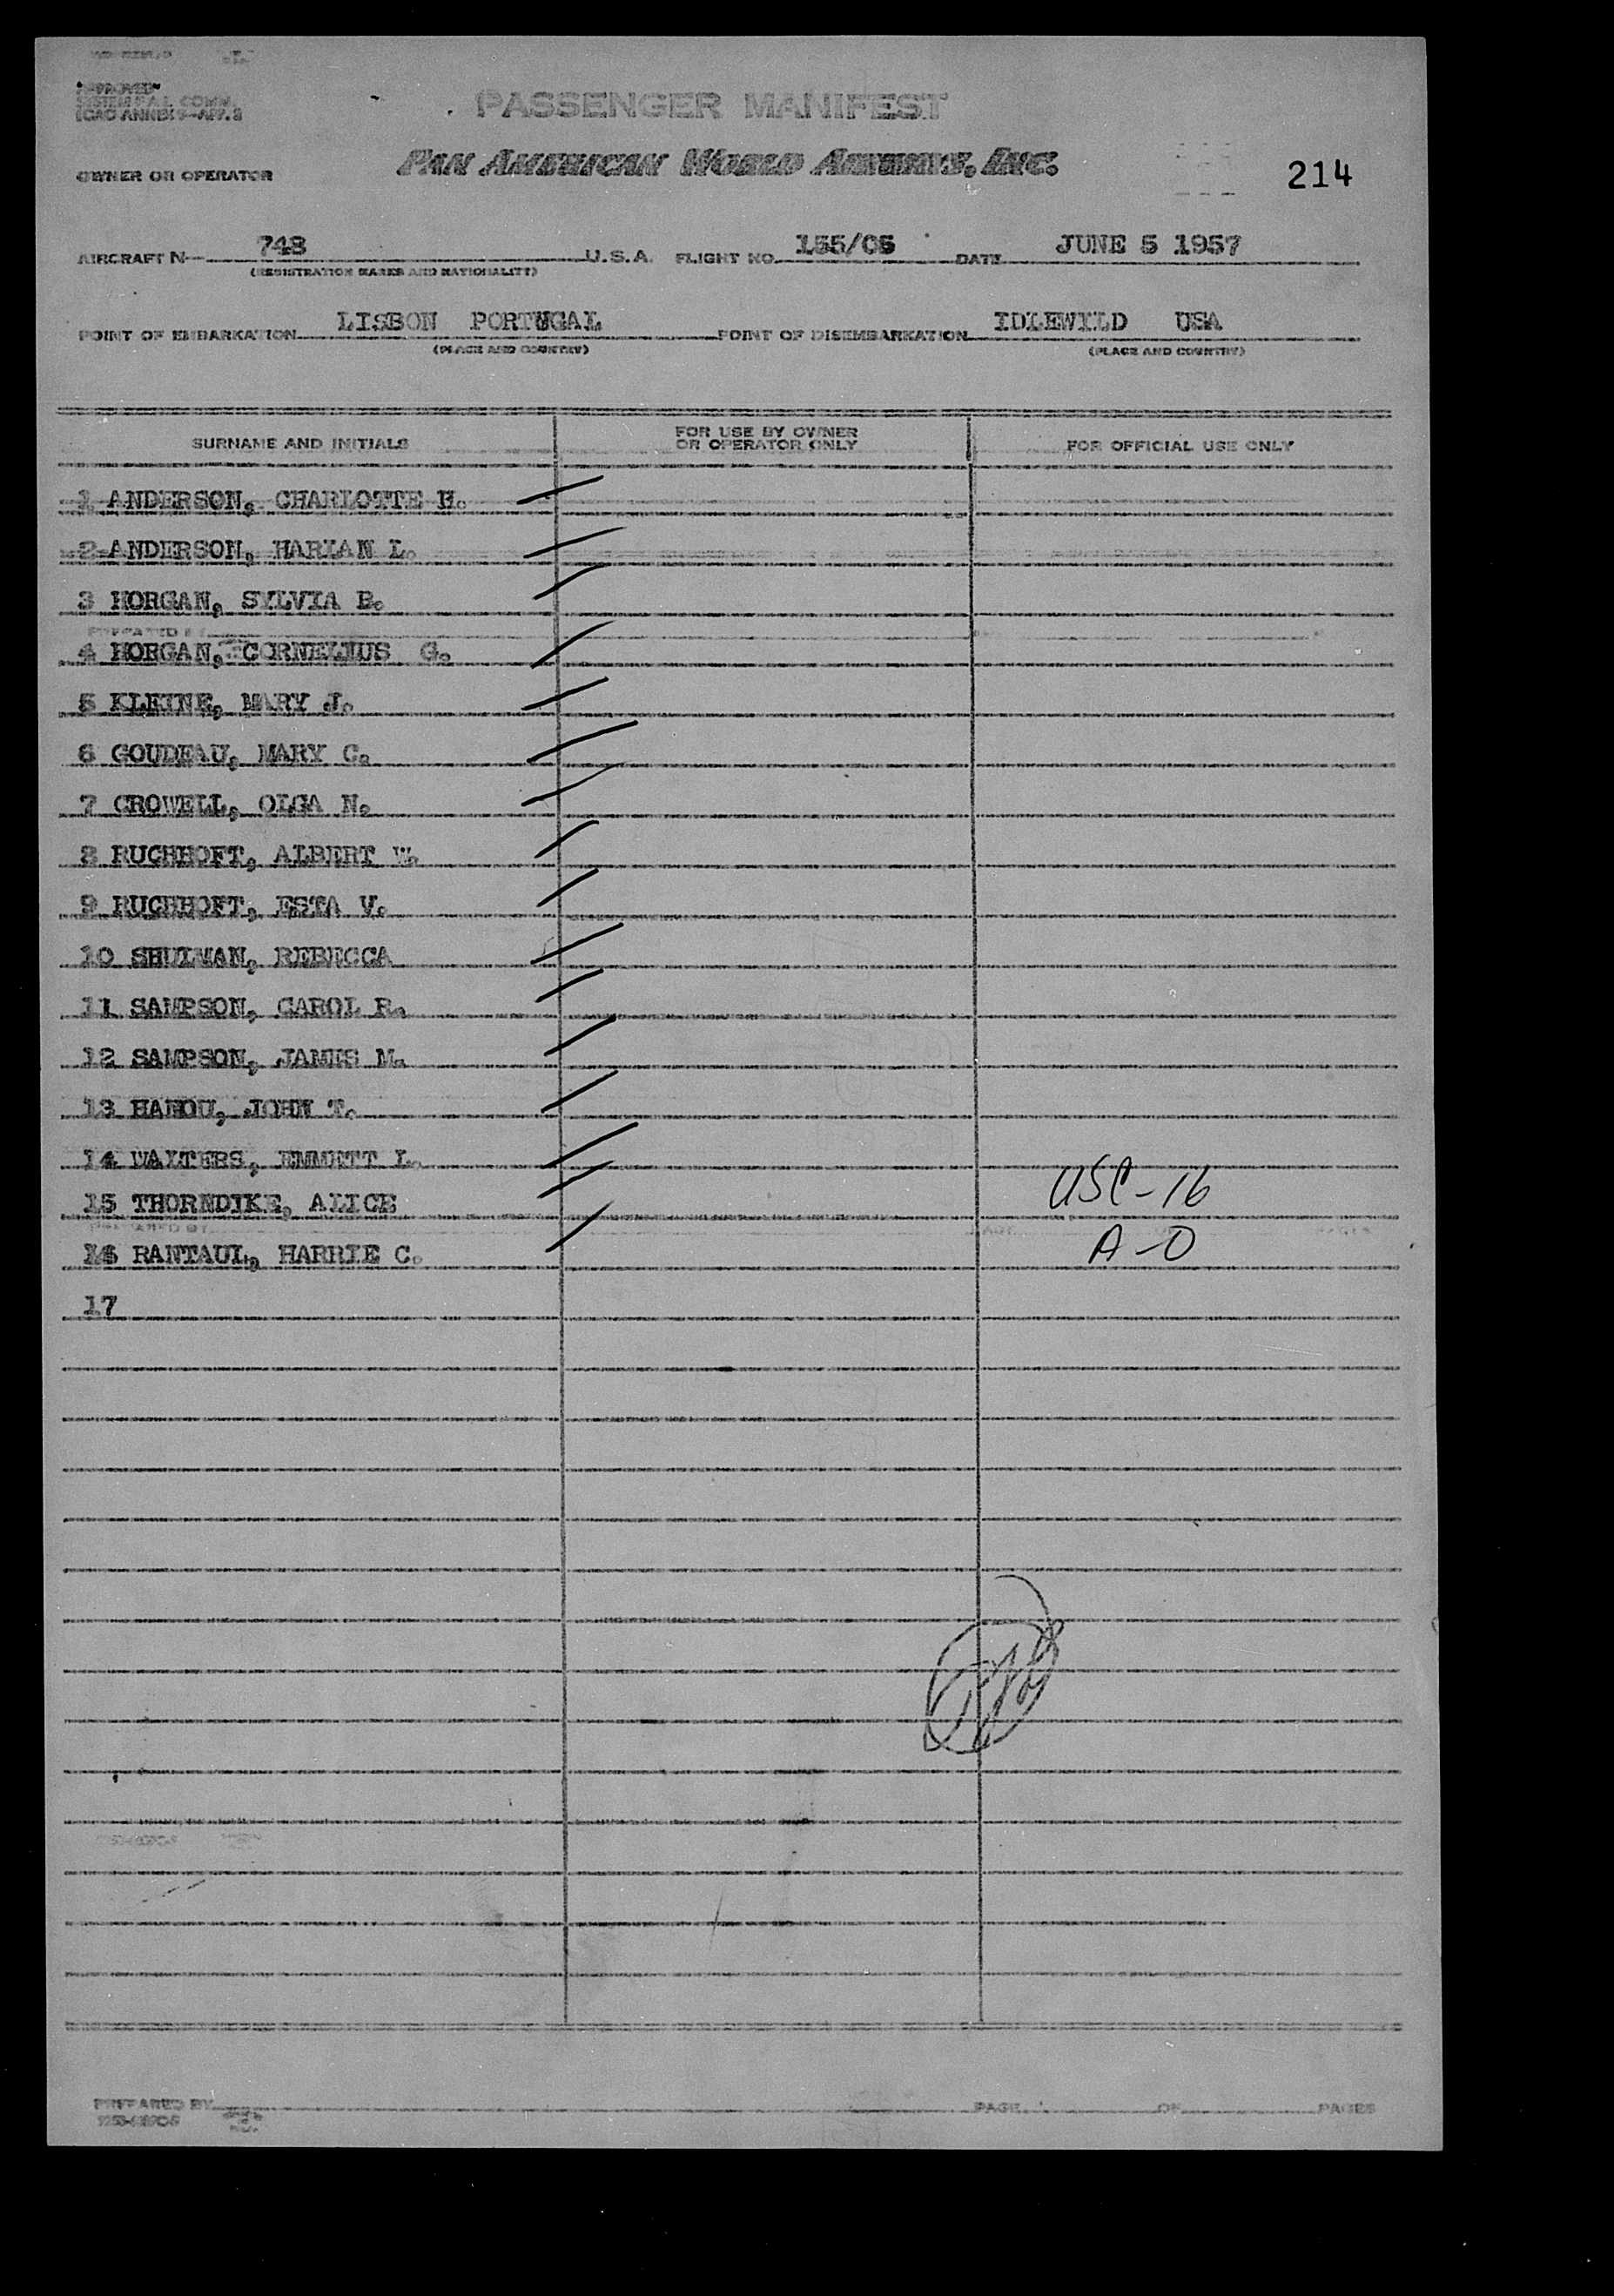 APPROVED
SYSTEM F.A.L. COMM.
ICAO ANNEX 9—APP. 2
PASSENGER MANIFEST
OWNER OR OPERATOR PAN AMERICAN WORLD AIRWAYS, INC. 214
AIRCRAFT N— 748 U.S.A. FLIGHT NO. 155/05 DATE JUNE 5 1957
(REGISTRATION MARKS AND NATIONALITY)
POINT OF EMBARKATION LISBON PORTUGAL POINT OF DISEMBARKATION IDLEWILD USA
(PLACE AND COUNTRY) (PLACE AND COUNTRY)
SURNAME AND INITIALS FOR USE BY OWNER OR OPERATOR ONLY FOR OFFICIAL USE ONLY
1 ANDERSON, CHARLOTTE H.
2 ANDERSON, HARLAN L.
3 HORGAN, SYLVIA B.
4 HORGAN, CORNELIUS G.
5 KLEINE, MARY J.
6 GOUDEAU, MARY C.
7 CROWELL, OLGA N.
8 RUCHHOFT, ALBERT W.
9 RUCHHOFT, ESTA V.
10 SHULMAN, REBECCA
11 SAMPSON, CAROL R.
12 SAMPSON, JAMES M.
13 HANOU, JOHN T.
14 WALTERS, EMMETT L.
15 THORNDIKE, ALICE USC-16
16 RANTAUL, HARRIE C. A-0
17
PREPARED BY PAGE OF PAGES